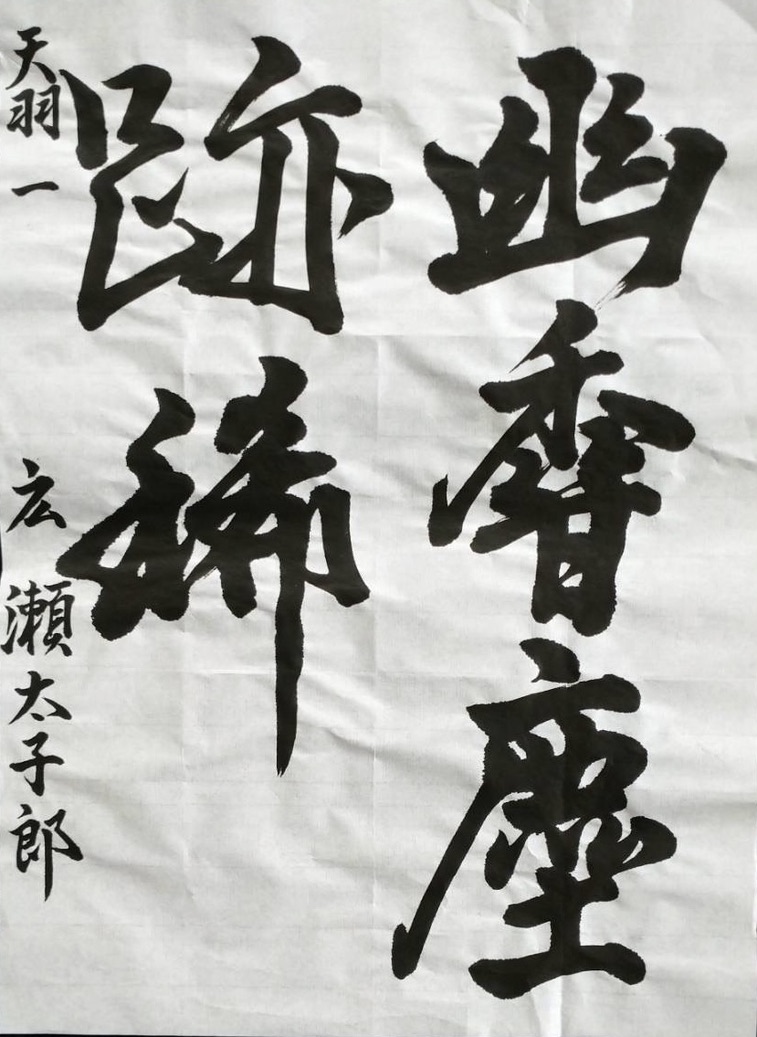 幽香塵
跡稀
天羽一 広瀬太子郎